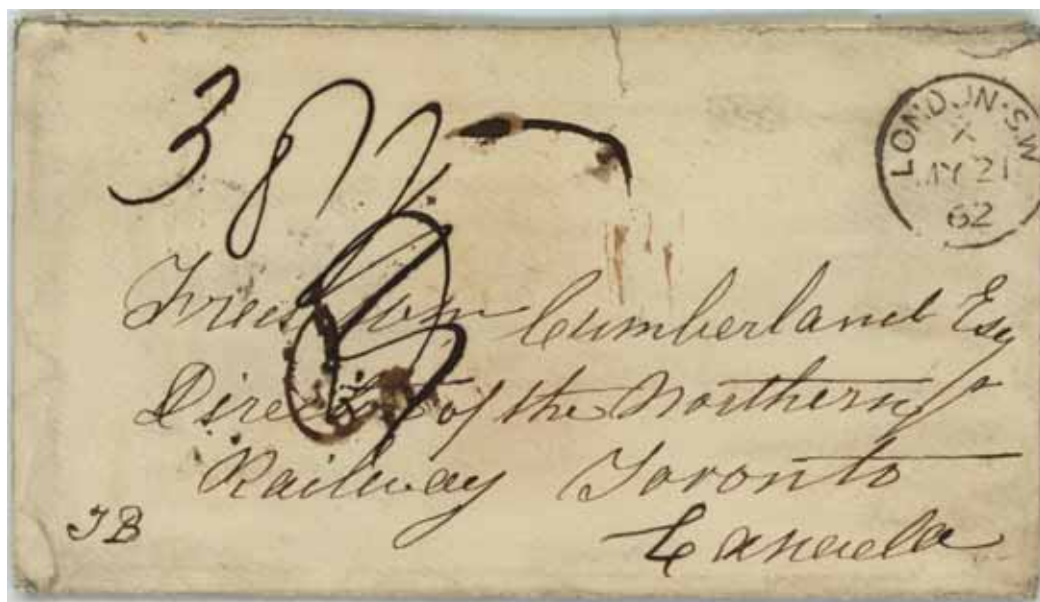 3 8½
LONDON·S.W
X
MY 21
62
Fred Wm Cumberland Esq
Director of the Northern
Railway Toronto
Canada
JB